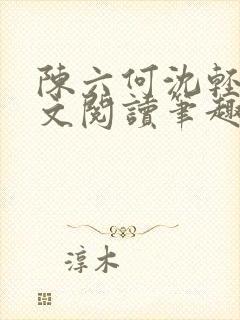 陳六何沈輕
文閱讀筆趣
淳木